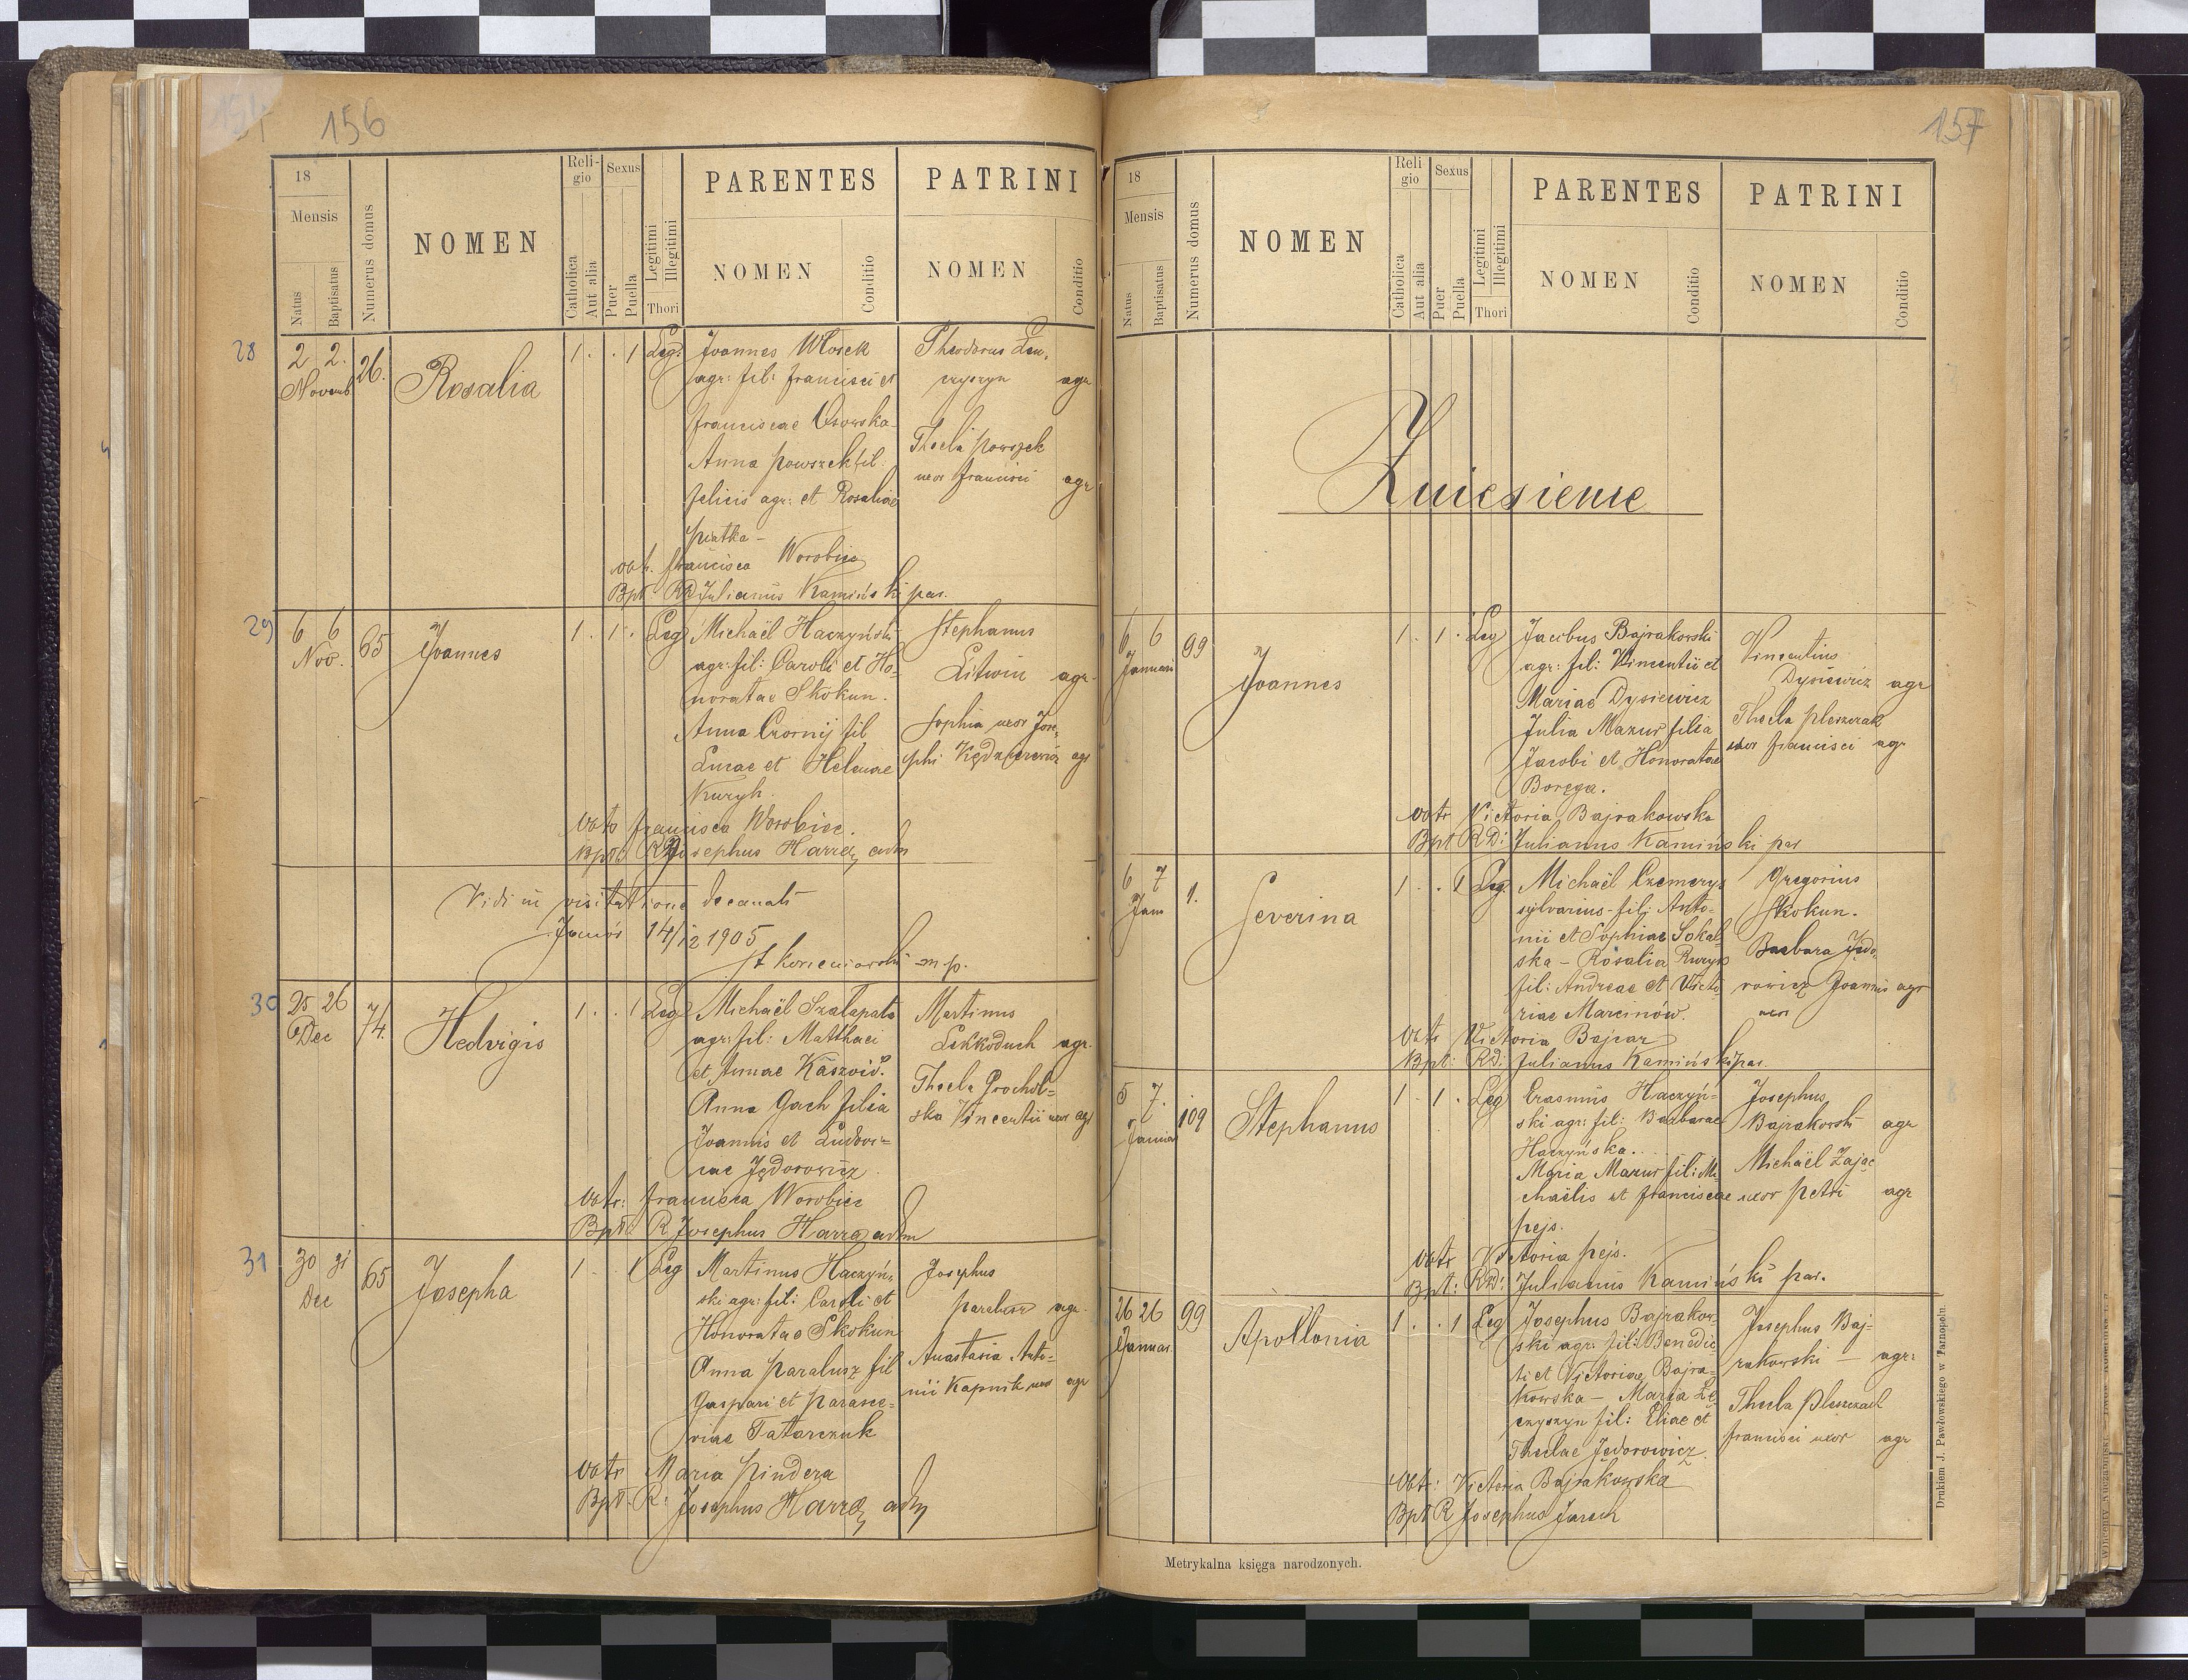 156
18
Mensis
Natus
Baptisatus
Numerus domus
NOMEN
Reli-
gio
Catholica
Aut alia
Sexus
Puer
Puella
Legitimi
Illegitimi
Thori
PARENTES
NOMEN
Conditio
PATRINI
NOMEN
Conditio
28
2 2.
Novemb
26.
Rosalia
1 . . 1 Leg:
Joannes Włosek
agr: fil: Francisci et
Franciscae Osowska
Anna Powszek fil:
Felicis agr: et Rosaliae
Piatka -
Theodorus Len,
czyszyn agr
Thecla Powszek
uxor Francisci agr
obst. Francisca Worobiec
Bpt RD Julianus Kamiński par.
29
6 6
Nov.
65
Joannes
1 . 1 . Leg
Michaël Haczyński
agr: fil: Caroli et Ho-
noratae Skokun.
Anna Czornij fil
Lucae et Helenae
Kuryk.
Stephanus
Litwin agr.
Sophia uxor Jose,
phi agr
Obst Francisca Worobiec.
Bpt RD Josephus Harrez adm
Vidi in visitatione decanali
Janów 14/12 1905
m p.
30
25 26
Dec
74.
Hedvigis
1 . . 1 Leg
Michaël Szałapata
agr: fil: Matthaei
et Annae
Anna Gach filia
Joannis et Ludovi=
cae Jędorowicz
Martinus
agr.
Thecla Grochol=
ska Vincentii uxor agr
Obstr: Francisca Worobiec
Bpt R Josephus Harrez adm
31
30 31
Dec
65
Josepha
1 . . 1 Leg
Martinus Haczyń,
ski agr: fil: Caroli et
Honoratae Skokun
Anna Paralusz fil
Gaspari et Parasce=
viae Tatarczuk
Josephus
Paralusz agr.
Anastasia Anto=
nii Kapnik uxor agr
Obstr Maria Pindera
Bpt. R: Josephus Harrez adm
157
18
Mensis
Natus
Baptisatus
Numerus domus
NOMEN
Reli
gio
Catholica
Aut alia
Sexus
Puer
Puella
Legitimi
Illegitimi
Thori
PARENTES
NOMEN
Conditio
PATRINI
NOMEN
Conditio
Zniesienie
6 6
Januari
99
Joannes
1 . 1 . Leg
Jacobus Bajrakowski
agr: fil: Vincentii et
Mariae Dysiewicz
Julia Mazur filia
Jacobi et Honoratae
Boręga.
Vincentius
Dysiewicz agr
Thecla Pleszczak
uxor Francisci agr
obstr Victoria Bajrakowska
Bpt RD: Julianus Kamiński par
6 7
Jan
1.
Severina
1 . . 1 Leg.
Michaël Czemerys
sylvarius fil: Anto-
nii et Sophiae Sokal-
ska - Rosalia Kuryk
fil: Andreae et Victo,
riae Marcinów.
Gregorius
Skokun.
Barbara Jędo,
rowicz Joannis agr
uxor
Obstr Victoria Bajcar
Bpt: RD: Julianus Kamiński par.
5 7.
Januar
109
Stephanus
1 . 1 . Leg
Erasmus Haczyń-
ski agr: fil: Barbarae
Haczyńska.
Maria Mazur fil: Mi
chaëlis et Franciscae
Pejs.
Josephus
Bajrakowski agr
Michaël Zając
uxor Petri agr
obstr Victoria Pejs.
Bpt: RD: Julianus Kamiński par.
26 26
Januar.
99
Apollonia
1 . . 1 Leg
Josephus Bajrakow-
ski agr: fil: Benedic-
ti et Victoriae Bajra-
kowska - Maria Le
czyszyn fil: Eliae et
Theclae Jędorowicz
Josephus Baj-
rakowski - agr:
Thecla Pleszczak
Francisci uxor agr
Obst: Victoria Bajrakowska
Bpt R Josephus Jarech
Metrykalna księga narodzonych.
Drukiem J. Pawłowskiego w Tarnopolu.